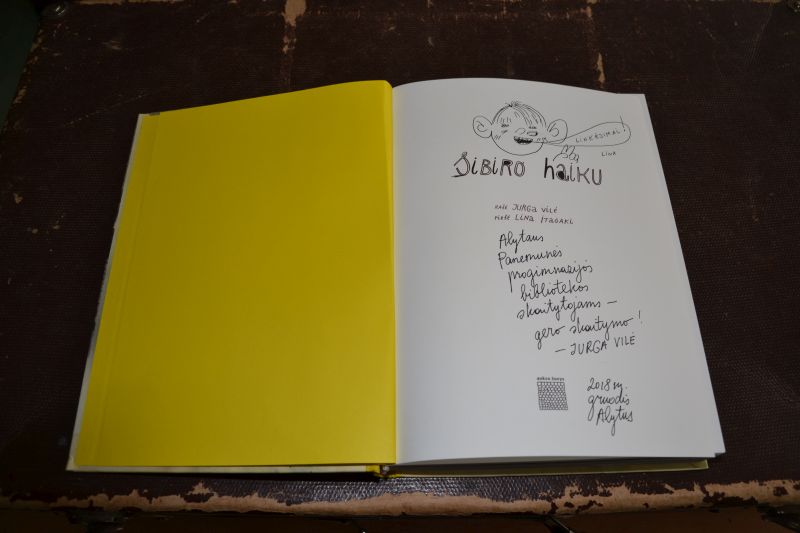 LINKĖJIMAI!
LINA
SiBiRO haiKU
RAŠĖ JURGA VILĖ
PIEŠĖ LiNa ITAGAKI
Alytaus
Panemunės
progimnazijos
bibliotekos
skaitytojams —
gero skaitymo!
— JURGA VILĖ
aukso žuvys
2018 m.
gruodis
Alytus